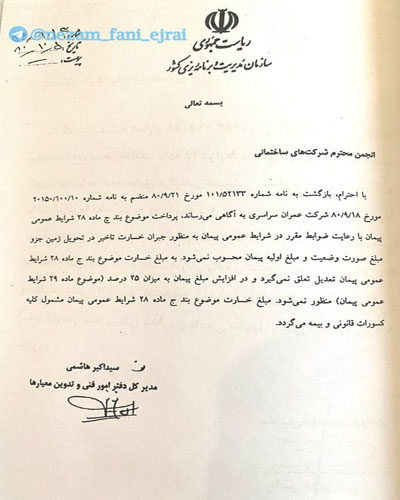 @nezam_fani_ejrai
ریاست جمهوری
سازمان مدیریت و برنامه‌ریزی کشور
تاریخ
پیوست:
بسمه تعالی
انجمن محترم شرکت‌های ساختمانی
با احترام، بازگشت به نامه شماره ۱۰۱/۵۲۱۳۳ مورخ ۸۰/۹/۲۱ منضم به نامه شماره ۲۰۱۵۰/۱۰۰/۱۰
مورخ ۸۰/۹/۱۸ شرکت عمران سراسری به آگاهی می‌رساند، پرداخت موضوع بند ج ماده ۲۸ شرایط عمومی
پیمان با رعایت ضوابط مقرر در شرایط عمومی پیمان به منظور جبران خسارت تاخیر در تحویل زمین جزو
مبلغ صورت وضعیت و مبلغ اولیه پیمان محسوب نمی‌شود. به مبلغ خسارت موضوع بند ج ماده ۲۸ شرایط
عمومی پیمان تعدیل تعلق نمی‌گیرد و در افزایش مبلغ پیمان به میزان ۲۵ درصد (موضوع ماده ۲۹ شرایط
عمومی پیمان) منظور نمی‌شود. مبلغ خسارت موضوع بند ج ماده ۲۸ شرایط عمومی پیمان مشمول کلیه
کسورات قانونی و بیمه می‌گردد.
سیداکبر هاشمی
مدیر کل دفتر امور فنی و تدوین معیارها